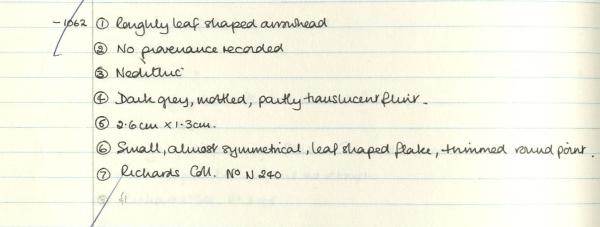 -1062 ① Roughly leaf shaped arrowhead
② No provenance recorded
③ Neolithic
④ Dark grey, mottled, partly translucent flint.
⑤ 2.6cm x 1.3cm.
⑥ Small, almost symmetrical, leaf shaped flake, trimmed round point.
⑦ Richards Coll. No N 240
⑧